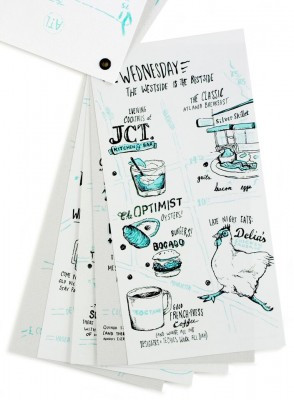 ATL
WEDNESDAY
THE WESTSIDE IS THE BESTSIDE
EVENING
COCKTAILS at
JCT.
KITCHEN & BAR
THE CLASSIC
ATLANTA BREAKFAST
Silver Skillet
grits
bacon
eggs
The OPTIMIST
OYSTERS!
BURGERS!
BOCADO
LATE NIGHT EATS:
Delia's
GOOD
FRENCH-PRESS
Coffee
(AND WHERE ALL THE
DESIGNERS + TECHIES WORK ALL DAY)